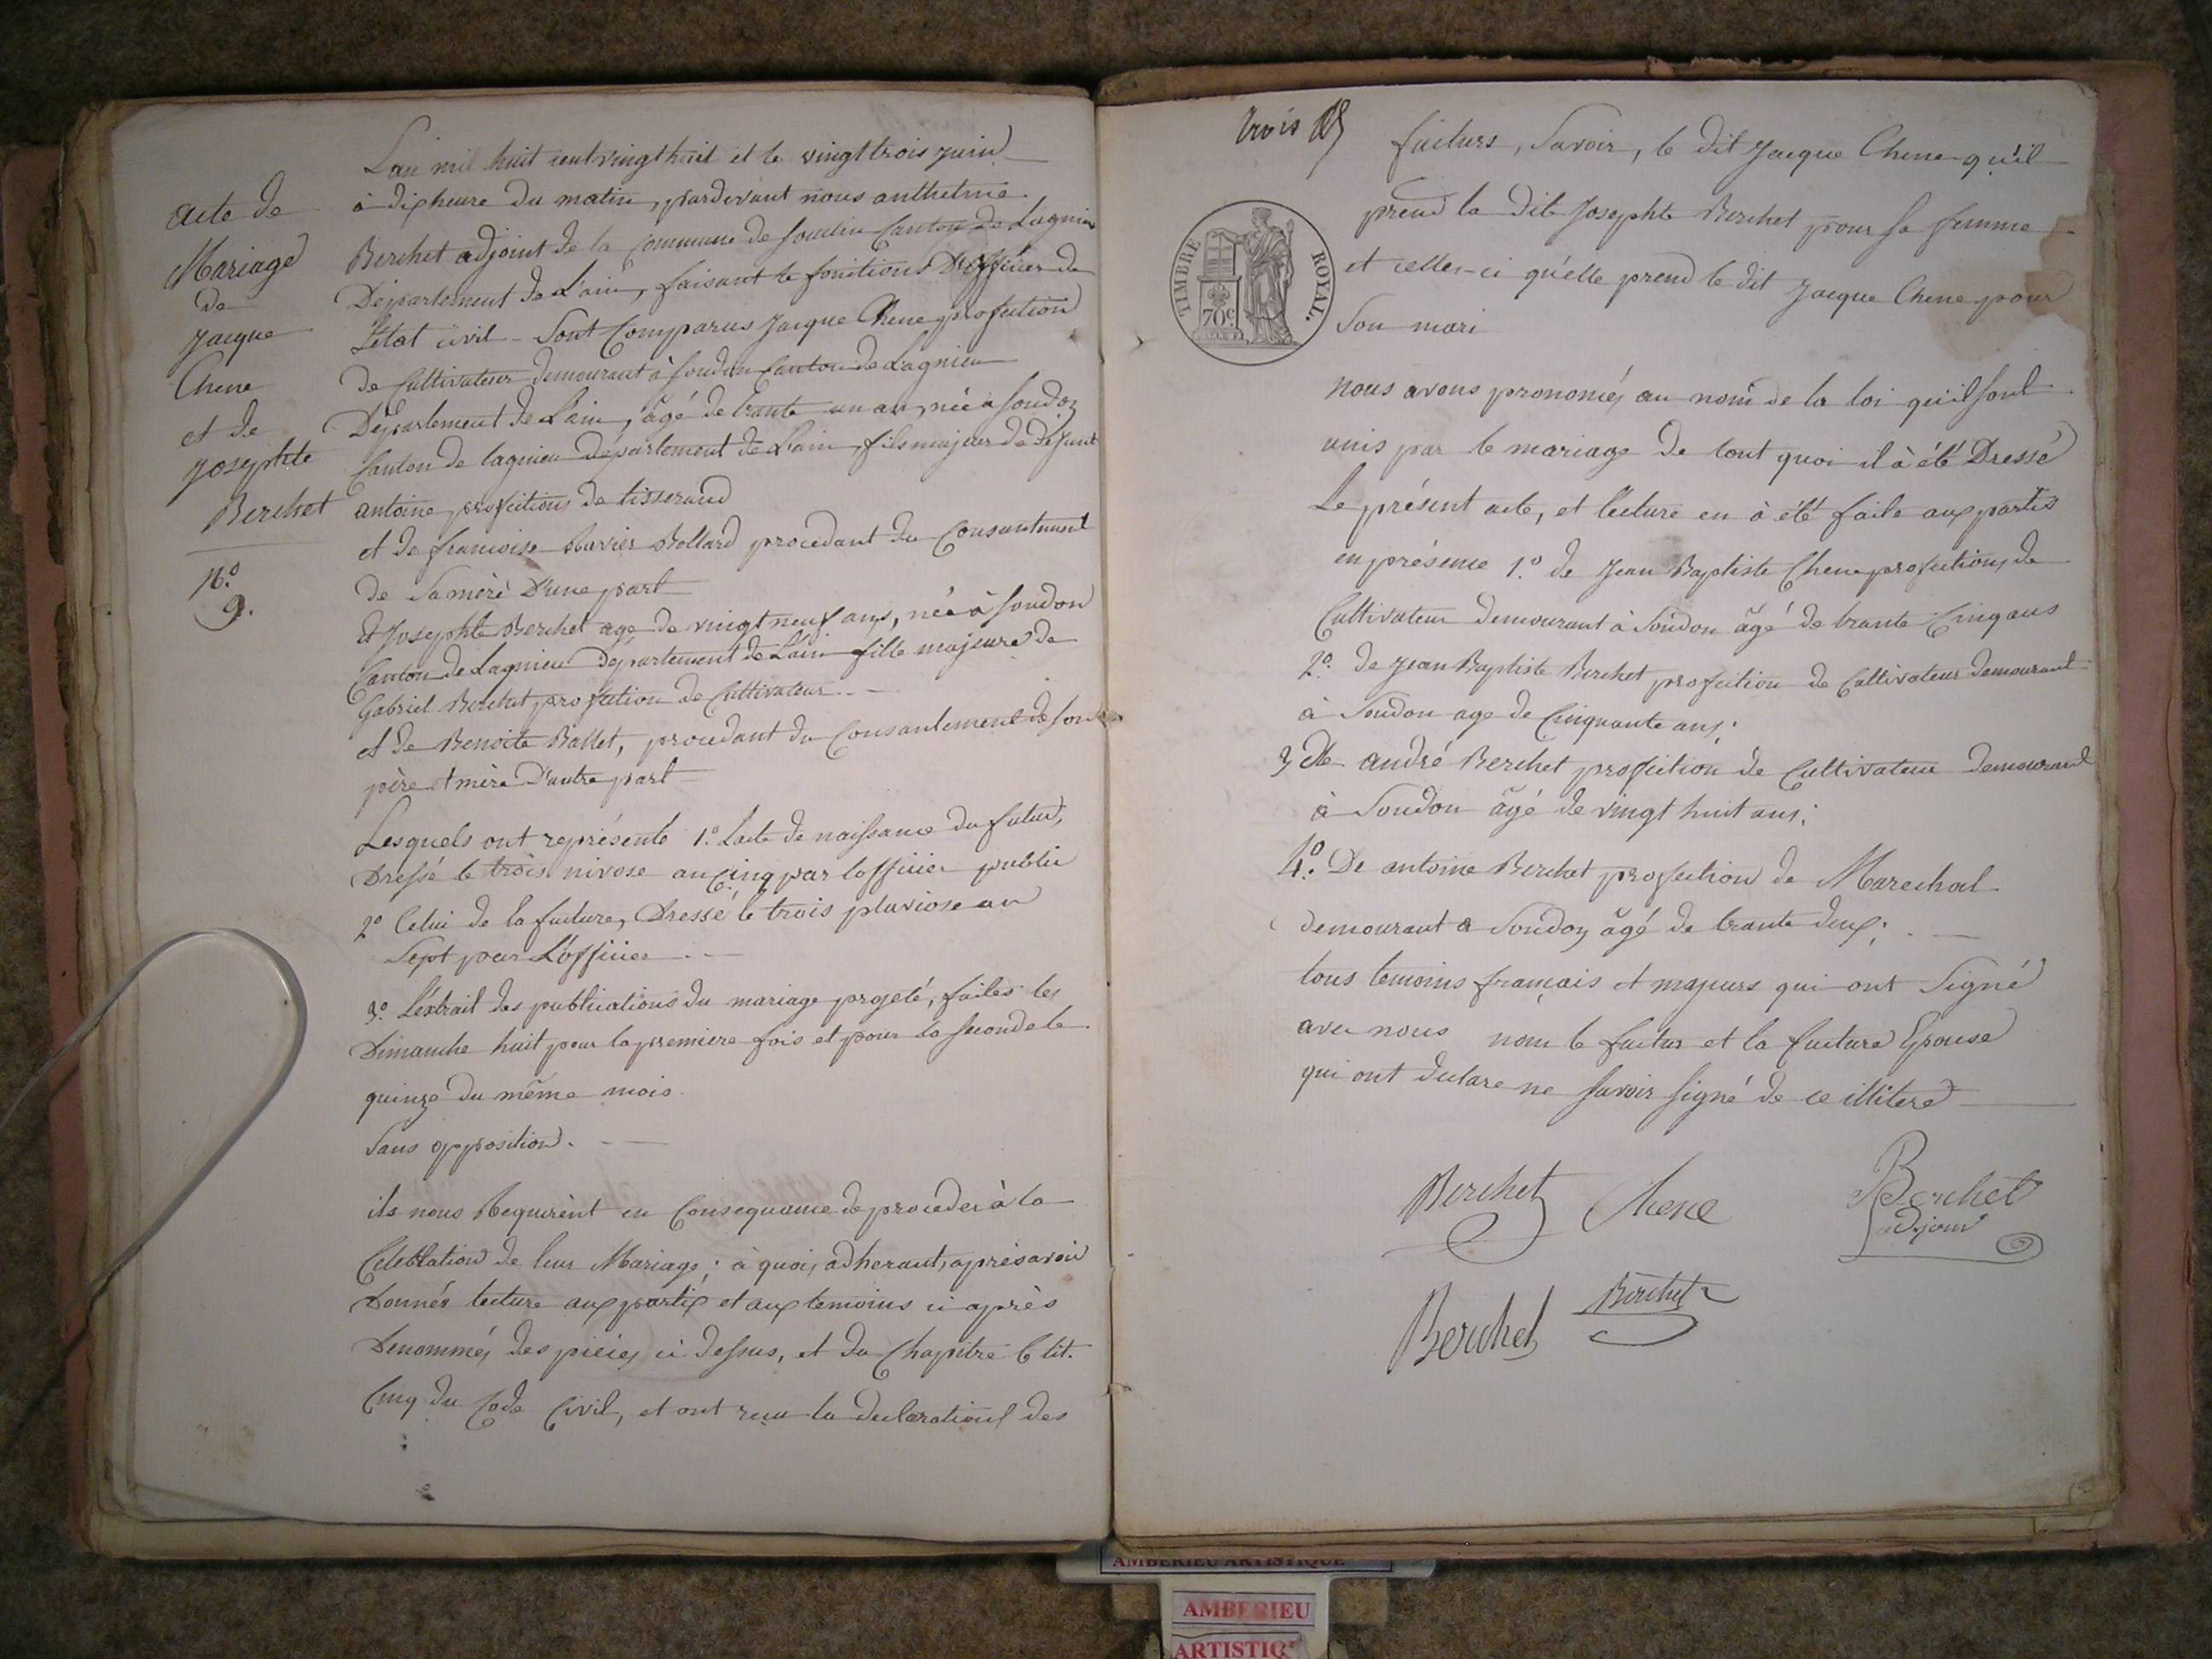 acte de
Mariage
de
Jacque
Chene
et de
Josephte
Berchet
N.º
9.
L'an mil huit cent vingt huit et le vingt trois juin
à dix heure du matin, pardevant nous anthelme
Berchet adjoint de la Commune de Souclin Canton de Lagnieu
Département de L'ain, faisant le fonitions D'officier de
L'état civil - Sont Comparus Jacque Chene profeition
de Cultivateur demourant à Soudon Canton de Lagnieu
Département de L'ain, âgé de trante un an, née a Soudon
Canton de lagnieu département de L'ain, fils majeur de defunt
antoine profeitions de tisserand
et de francoise Bollard procedant du Consantement
de Sa mère D'une part
Et Josephte Berchet age de vingt neuf ans, née à Soudon
Canton de Lagnieu Département de L'ain fille majeure de
Gabriel Berchet profeition de Cultivateur
et de Benoite Ballet, procedant du Consantement de son
père et mère D'autre part
Lesquels ont représenté 1.º L'acte de naissance du futur,
Dressé le trois nivose an Cinq par l'officier public
2º Celui de la future, Dressé le trois pluviose an
Sept par L'officier
3.º L'éxtrait des publications du mariage projeté, faites les
Dimanche huit pour la premiere fois et pour la seconde le
quinze du même mois
Sans opposition.
ils nous Requirènt en Consequance de proceder à la
Celebration de leur Mariage ; à quoi, adherant, après avoir
Donnés lecture aux partis et aux temoins ci après
Denommés des pièces ci dessus, et du Chapitre 6 tit.
Cinq du Code Civil, et ont reçu la declarations des
trois
futurs, Savoir, le dit Jacque Chene qu'il
prend la dite Josephte Berchet pour sa femme
et celles-ci qu'elle prend le dit Jacque Chene pour
Son mari
TIMBRE ROYAL.
70 c.
nous avons prononcés au nom de la loi qu'il sont
unis par le mariage de tout quoi il à été Dressé
Le présent acte, et lecture en à été faite aux partis
en présence 1.º de Jean Baptiste Chene profeitions de
Cultivateur demourant à Soudon âgé de trante Cinq ans
2.º de Jean Baptiste Berchet profeition de Cultivateur demourant
à Soudon age de Cinquante ans ;
3 de andré Berchet profeition de Cultivateur demourant
à Soudon âgé de vingt huit ans ;
4.º De antoine Berchet profeition de Marechal
demourant a Soudon âgé de trante deux ;
tous temoins français et majeurs qui ont Signé
avec nous nom le futur et la future Epouse
qui ont declare ne savoir signé de ce illiteré
Berchet Chene Berchet
adjoint
Berchet Berchet
AMBERIEU ARTISTIQUE
AMBERIEU
ARTISTIQ